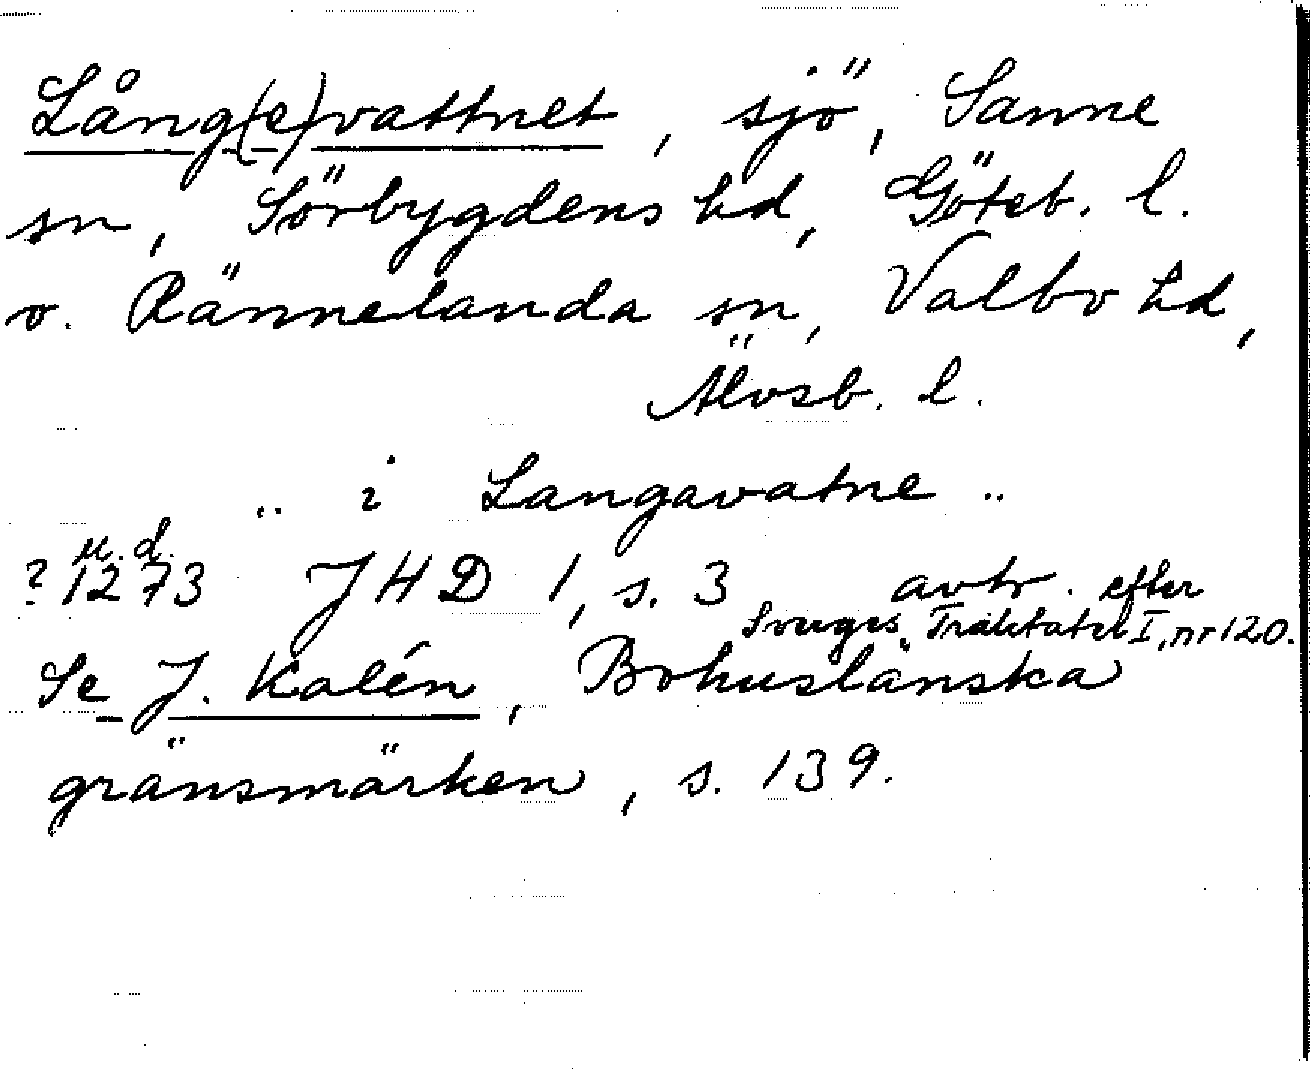 Lång(e)vattnet, sjö, Sanne
sn, Sörbygdens hd, Göteb. l.
o. Rännelanda sn, Valbo hd,
Älvsb. l.
.. i Langavatne ..
u. d.
? 1273 JHD 1, s. 3 avtr. efter
Sveriges Traktater I, nr 120.
Se J. Kalén, Bohuslänska
gränsmärken, s. 139.